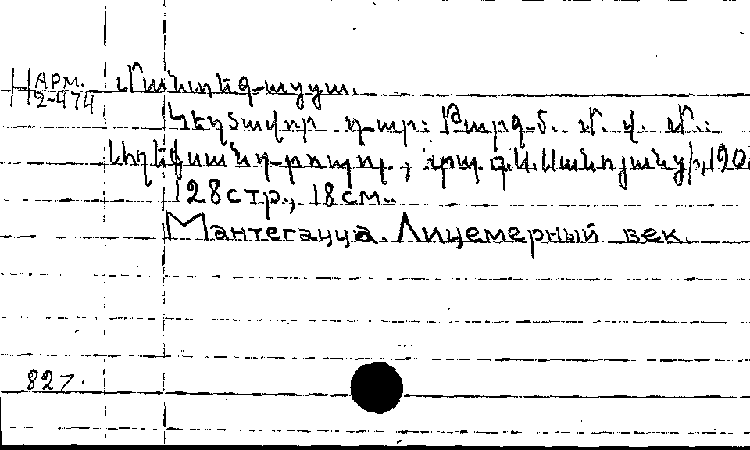 АРМ.
2-474
Մանտեգացցա.
Կեղծավոր դար: Թարգմ. Մ. վ. Մ.:
Ալեքսանդրապոլ, տպ. գ. Ս. Սանոյանց, 190
128 стр., 18 см.
Мантегацца. Лицемерный век.
827.